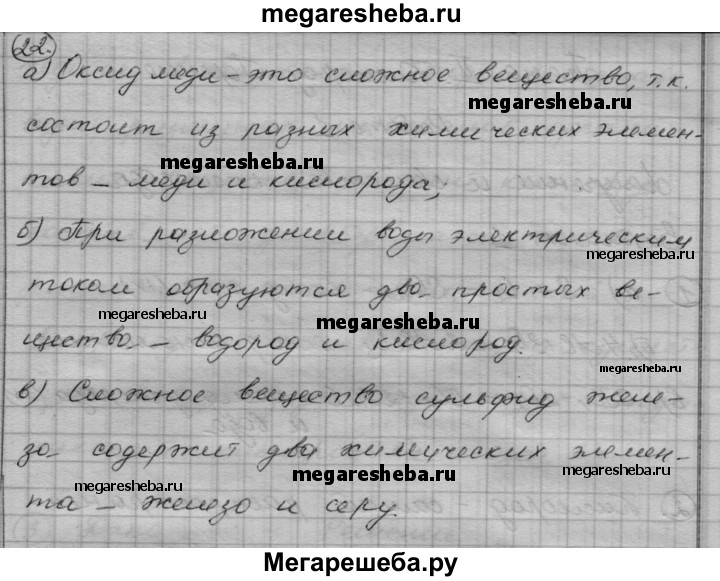 megaresheba.ru
22.
а) Оксид меди - это сложное вещество, т.к.
megaresheba.ru
состоит из разных химических элемен-
megaresheba.ru
тов - меди и кислорода;
б) При разложении воды электрическим
megaresheba.ru
током образуются два простых ве-
megaresheba.ru
megaresheba.ru
щества - водород и кислород.
megaresheba.ru
в) Сложное вещество сульфид желе-
за содержит два химических элемен-
megaresheba.ru
megaresheba.ru
megaresheba.ru
та - железо и серу.
Мегарешеба.ру